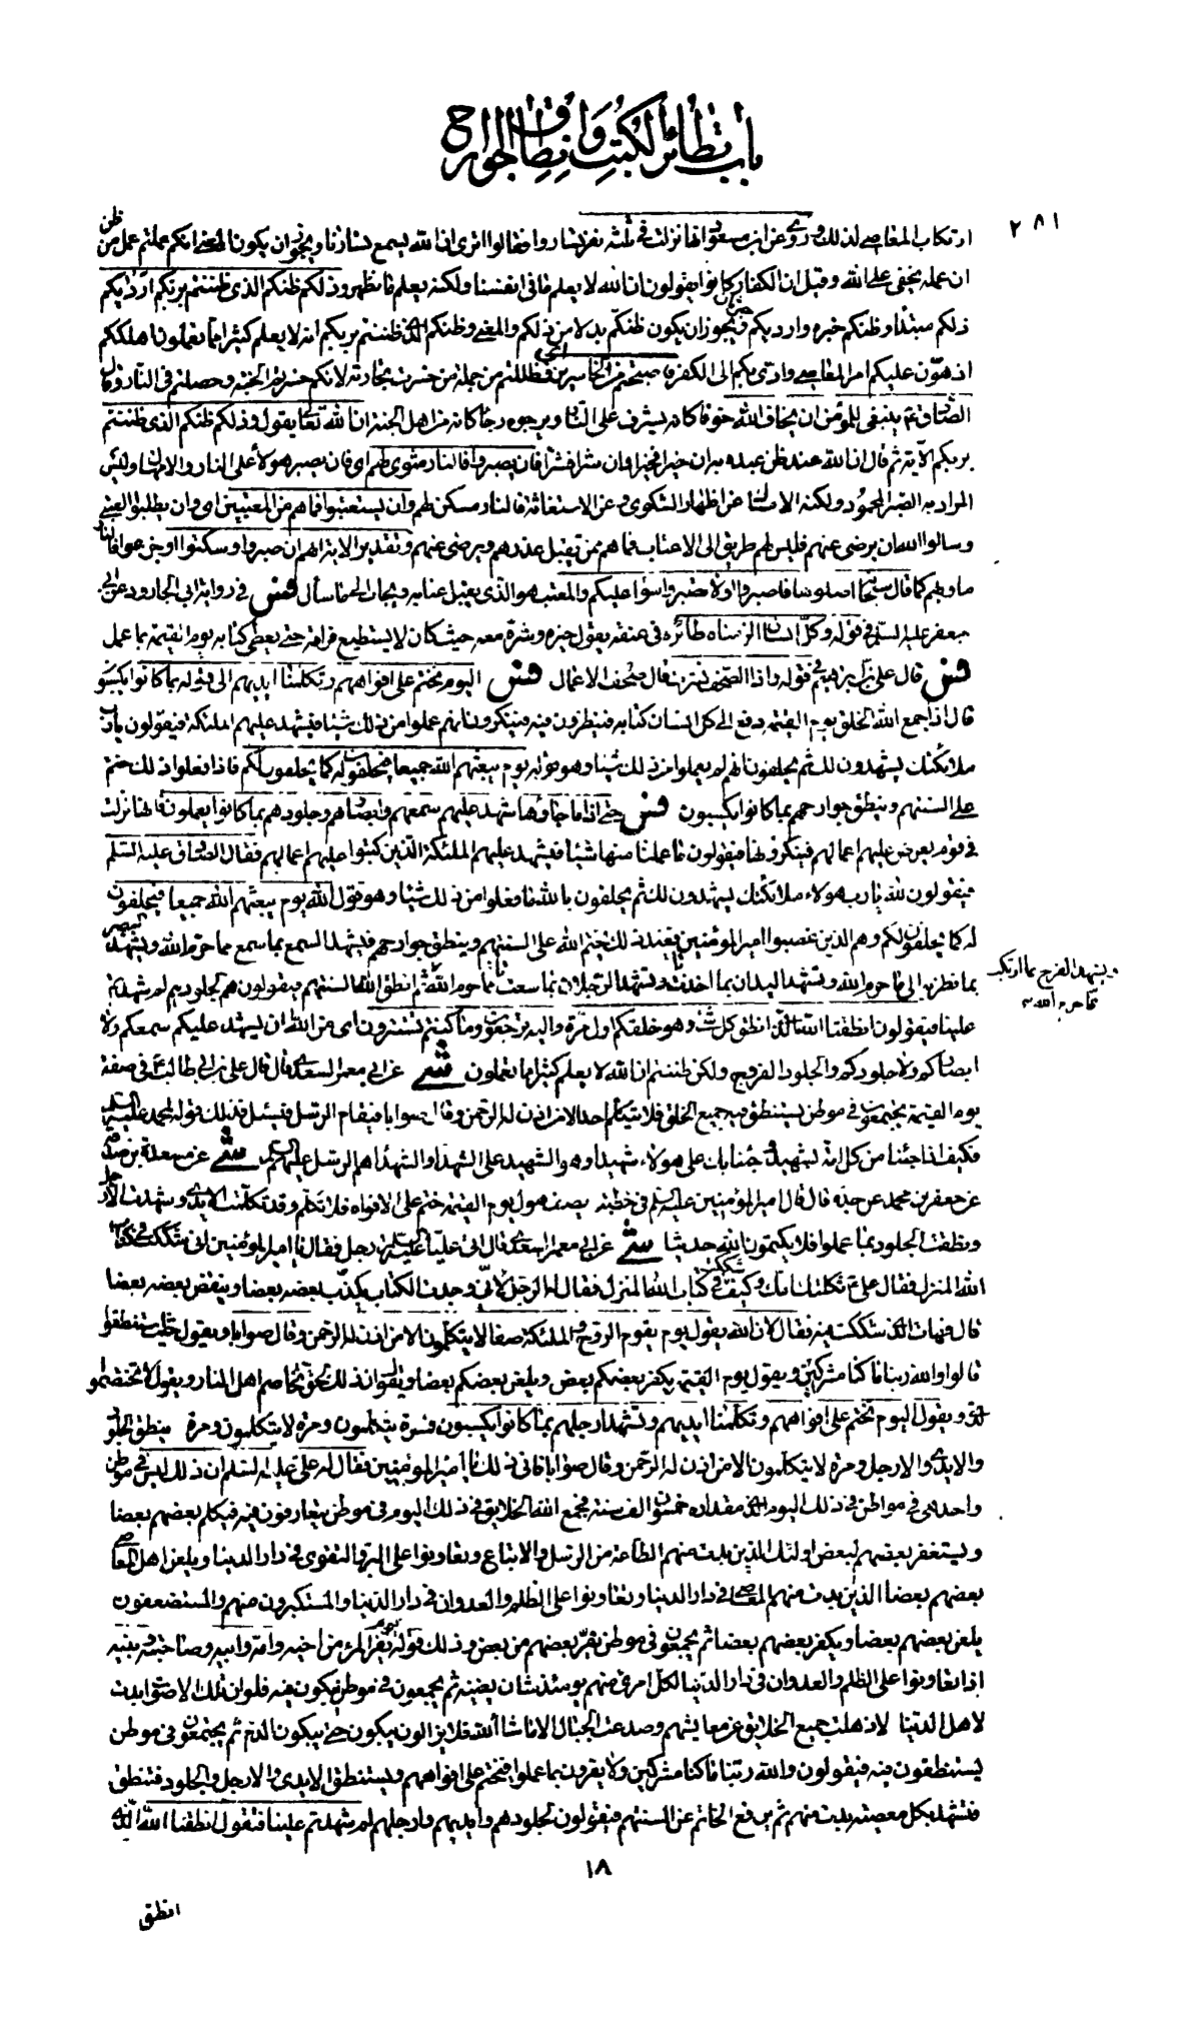 باب تطائر الكتب وانطاق الجوارح
٢٨١
ارتكاب المعاصي لذلك وروي عن ابن مسعود انها نزلت في ثلثة نفر تساروا فقالوا اترى ان الله يسمع تسارنا ويجوز ان يكون المعنى انكم عملتم عمل من ظن
ان عمله يخفى على الله وقيل ان الكفار كانوا يقولون ان الله لا يعلم ما في انفسنا ولكنه يعلم ما يظهر وذلكم ظنكم الذي ظننتم بربكم ارديكم
ذلكم مبتدأ وظنكم خبره وارديكم خبر ثان ويجوز ان يكون ظنكم بدلا من ذلكم والمعنى وظنكم الذي ظننتم بربكم انه لا يعلم كثيرا مما تعملون اهلككم
اذ هون عليكم امر المعاصي وادى بكم الى الكفر فاصبحتم من الخاسرين اي فظللتم من جملة من خسرت تجارته لانكم خسرتم الجنة وحصلتم في النار وقال
الصادق ع ينبغي للمؤمن ان يخاف الله خوفا كانه يشرف على النار ويرجوه رجاء كانه من اهل الجنة ان الله تعالى يقول وذلكم ظنكم الذي ظننتم
بربكم الآية ثم قال ان الله عند ظن عبده به ان خيرا فخيرا وان شرا فشرا فان يصبروا فالنار مثوى لهم اي فان يصبر هؤلاء على النار والامها وليس
المراد به الصبر المحمود ولكنه الامساك عن اظهار الشكوى وعن الاستغاثة فالنار مسكن لهم وان يستعتبوا فما هم من المعتبين اي وان يطلبوا العتبى
وسالوا الله ان يرضى عنهم فليس لهم طريق الى الاعتاب فما هم ممن يقبل عذرهم ويرضى عنهم وتقدير الاية انهم ان صبروا وسكتوا او جزعوا فالنار
ماويهم كما قال سبحانه اصلوها فاصبروا او لا تصبروا سواء عليكم والمعتب هو الذي يقبل عتابه ويجاب الى ما سأل فس في رواية ابي الجارود عن ابي
جعفر عليه السلم في قوله وكل انسان الزمناه طائره في عنقه يقول خيره وشره معه حيث كان لا يستطيع فراقه حتى يعطى كتابه يوم القيمة بما عمل
فس قال علي بن ابرهيم في قوله واذا الصحف نشرت قال صحف الاعمال فس اليوم نختم على افواههم وتكلمنا ايديهم الى قوله بما كانوا يكسبون
قال اذا جمع الله الخلق يوم القيمة دفع الى كل انسان كتابه فينظرون فيه فينكرون انهم عملوا من ذلك شيئا فيشهد عليهم الملئكة فيقولون يا رب
ملائكتك يشهدون لك ثم يحلفون انهم لم يعملوا من ذلك شيئا وهو قوله يوم يبعثهم الله جميعا فيحلفون له كما يحلفون لكم فاذا فعلوا ذلك ختم
على السنتهم وينطق جوارحهم بما كانوا يكسبون فس حتى اذا ما جاؤها شهد عليهم سمعهم وابصارهم وجلودهم بما كانوا يعملون فانها نزلت
في قوم يعرض عليهم اعمالهم فينكرونها فيقولون ما عملنا منها شيئا فيشهد عليهم الملئكة الذين كتبوا عليهم اعمالهم فقال الصادق عليه السلم
فيقولون لله يا رب هؤلاء ملائكتك يشهدون لك ثم يحلفون بالله ما فعلوا من ذلك شيئا وهو قول الله يوم يبعثهم الله جميعا فيحلفون
له كما يحلفون لكم وهم الذين غصبوا امير المؤمنين فعند ذلك يختم الله على السنتهم وينطق جوارحهم فيشهد السمع بما سمع مما حرم الله ويشهد البصر
بما نظر به الى ما حرم الله وتشهد اليدان بما اخذتا وتشهد الرجلان بما سعتا مما حرم الله ثم انطق الله السنتهم فيقولون هم لجلودهم لم شهدتم
ويشهد الفرج بما ارتكب
مما حرم الله
علينا فيقولون انطقنا الله الذي انطق كل شئ وهو خلقكم اول مرة واليه ترجعون وما كنتم تستترون اي من الله ان يشهد عليكم سمعكم ولا
ابصاركم ولا جلودكم والجلود الفروج ولكن ظننتم ان الله لا يعلم كثيرا مما تعملون شي عن ابي معمر السعدي قال قال علي بن ابي طالب ع في صفة
يوم القيمة يجتمعون في موطن يستنطق فيه جميع الخلق فلا يتكلم احد الا من اذن له الرحمن وقال صوابا فيقام الرسل فيسئل فذلك قوله لمحمد عليه السلم
فكيف اذا جئنا من كل امة بشهيد وجئنا بك على هؤلاء شهيدا وهو الشهيد على الشهداء والشهداء هم الرسل عليهم السلم شي عن مسعدة بن صدقة
عن جعفر بن محمد عن جده قال قال امير المؤمنين عليه السلم في خطبته يصف هول يوم القيمة ختم على الافواه فلا تكلم وقد تكلمت الايدي وشهدت الارجل
ونطقت الجلود بما عملوا فلا يكتمون الله حديثا شي عن ابي معمر السعدي قال اتى عليا عليه السلم رجل فقال يا امير المؤمنين اني شككت في كتاب
الله المنزل فقال علي ع ثكلتك امك وكيف شككت في كتاب الله المنزل فقال له الرجل لاني وجدت الكتاب يكذب بعضه بعضا وينقض بعضه بعضا
قال فهات الذي شككت فيه فقال لان الله يقول يوم يقوم الروح والملئكة صفا لا يتكلمون الا من اذن له الرحمن وقال صوابا ويقول حيث استنطقوا
قالوا والله ربنا ما كنا مشركين ويقول يوم القيمة يكفر بعضكم ببعض ويلعن بعضكم بعضا ويقول ان ذلك لحق تخاصم اهل النار ويقول لا تختصموا
لدي ويقول اليوم نختم على افواههم وتكلمنا ايديهم وتشهد ارجلهم بما كانوا يكسبون فمرة يتكلمون ومرة لا يتكلمون ومرة ينطق الجلود
والايدي والارجل ومرة لا يتكلمون الا من اذن له الرحمن وقال صوابا فانى ذلك يا امير المؤمنين فقال له علي عليه السلم ان ذلك ليس في موطن
واحد هي في مواطن في ذلك اليوم الذي مقداره خمسون الف سنة فجمع الله الخلايق في ذلك اليوم في موطن يتعارفون فيه فيكلم بعضهم بعضا
ويستغفر بعضهم لبعض اولئك الذين بدت منهم الطاعة من الرسل والاتباع وتعاونوا على البر والتقوى في دار الدنيا ويلعن اهل المعاصي
بعضهم بعضا الذين بدت منهم المعاصي في دار الدنيا وتعاونوا على الظلم والعدوان في دار الدنيا والمستكبرون منهم والمستضعفون
يلعن بعضهم بعضا ويكفر بعضهم بعضا ثم يجمعون في موطن يفر بعضهم من بعض وذلك قوله يوم يفر المرء من اخيه وامه وابيه وصاحبته وبنيه
اذا تعاونوا على الظلم والعدوان في دار الدنيا لكل امرئ منهم يومئذ شان يغنيه ثم يجمعون في موطن يبكون فيه فلو ان تلك الاصوات بدت
لاهل الدنيا لاذهلت جميع الخلايق عن معايشهم وصدعت الجبال الا ما شاء الله فلا يزالون يبكون حتى يبكون الدم ثم يجتمعون في موطن
يستنطقون فيه فيقولون والله ربنا ما كنا مشركين ولا يقرون بما عملوا فيختم على افواههم ويستنطق الايدي والارجل والجلود فتنطق
فتشهد بكل معصية بدت منهم ثم يرفع الخاتم عن السنتهم فيقولون لجلودهم وايديهم وارجلهم لم شهدتم علينا فتقول انطقنا الله الذي
١٨
انطق